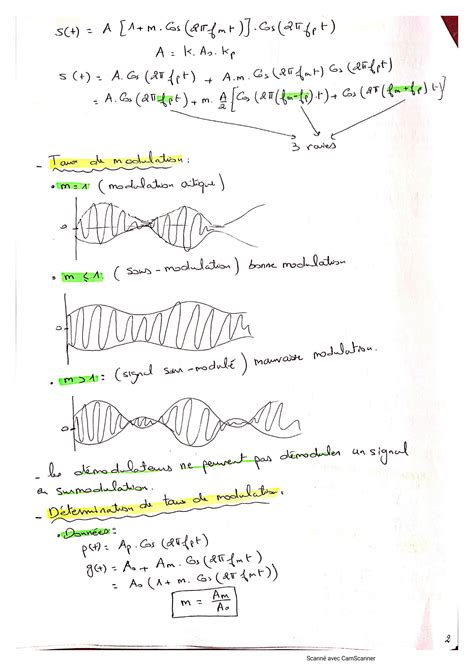 S(t) = A [1+m.Cos(2πfmt)].Cos(2πfpt)
A = k.A0.kp
s(t) = A.Cos(2πfpt) + A.m.Cos(2πfmt) Cos(2πfpt)
= A.Cos(2πfpt) + m.A/2 [Cos(2π(fm-fp).t) + Cos(2π(fm+fp).t)]
3 raies
- Taux de modulation:
• m=1: (modulation critique)
0
• m<1: (sous-modulation) bonne modulation
0
• m>1: (signal sur-modulé) mauvaise modulation.
0
- les démodulateurs ne peuvent pas démoduler un signal
en surmodulation.
- Détermination de taux de modulation.
• Données:
p(t) = Ap.Cos(2πfpt)
g(t) = A0 + Am.Cos(2πfmt)
= A0(1+m.Cos(2πfmt))
m = Am/A0
2
Scanné avec CamScanner